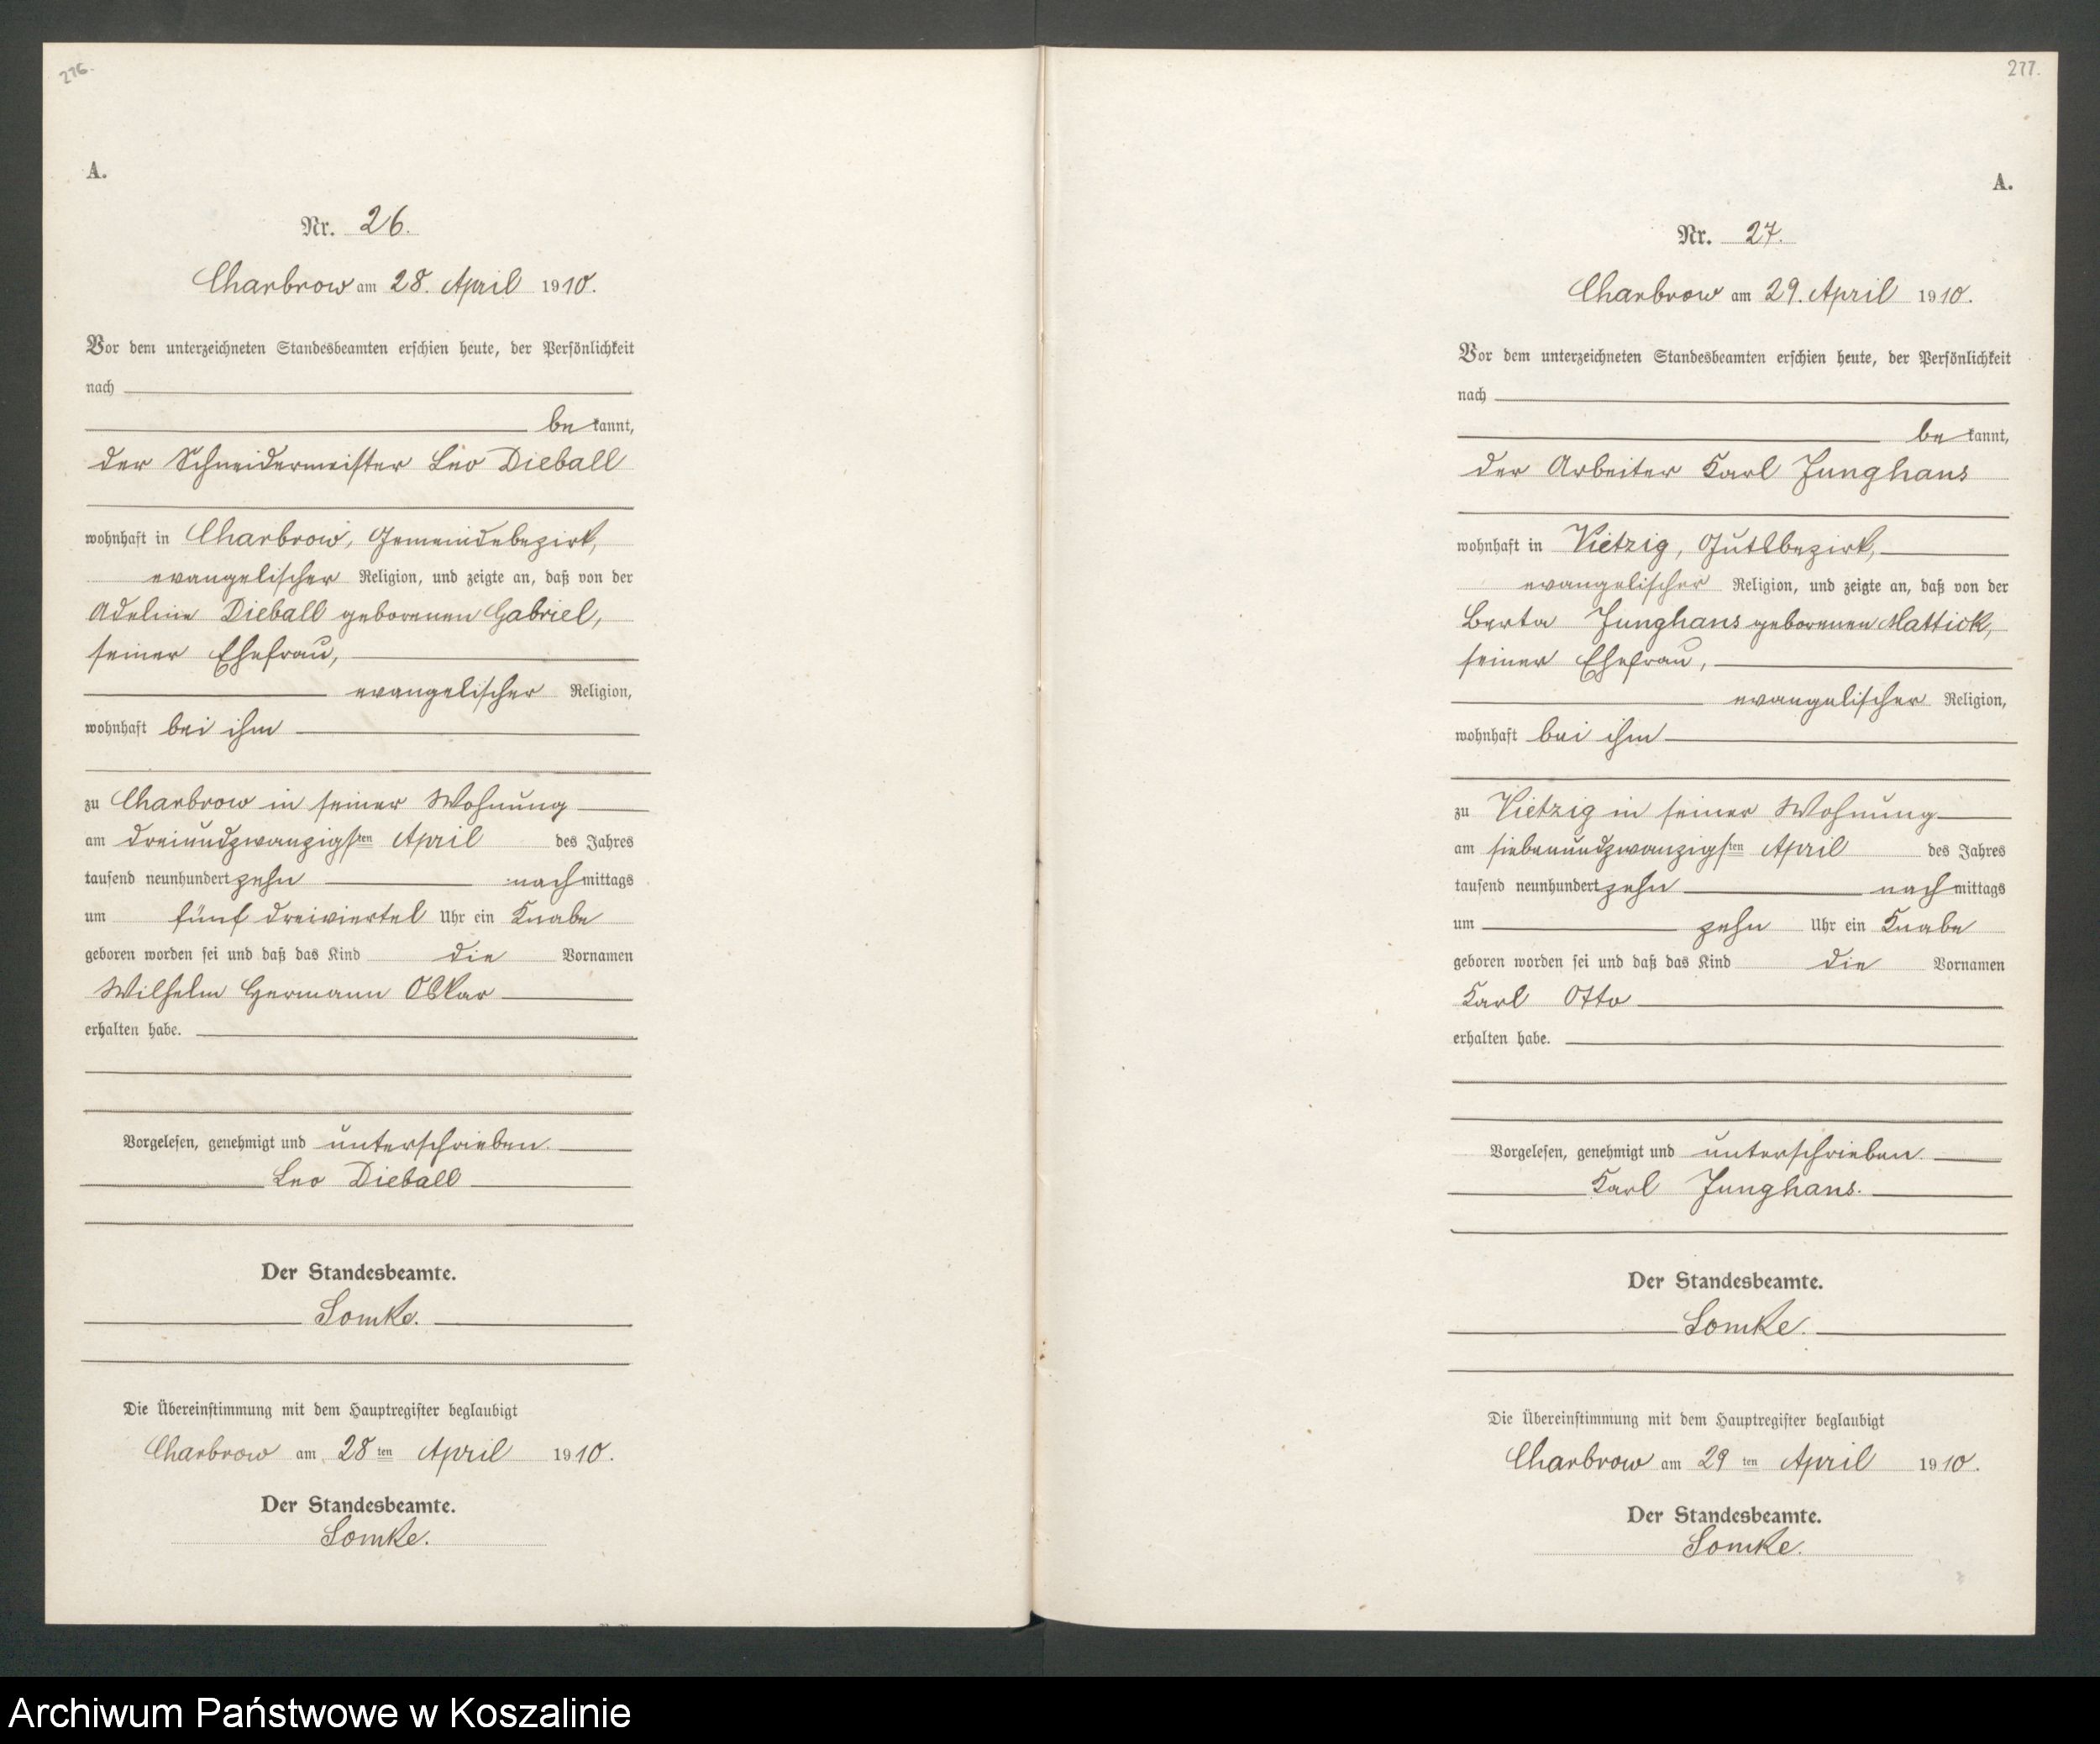 276.
A.
Nr. 26.
Charbrow am 28. April 1910.
Vor dem unterzeichneten Standesbeamten erschien heute, der Persönlichkeit
nach
bekannt,
der Schneidermeister Leo Dieball
wohnhaft in Charbrow, Gemeindebezirk,
evangelischer Religion, und zeigte an, daß von der
Adeline Dieball geborenen Gabriel,
seiner Ehefrau,
evangelischer Religion,
wohnhaft bei ihm
zu Charbrow in seiner Wohnung
am dreiundzwanzigsten April des Jahres
tausend neunhundert zehn nachmittags
um fünf dreiviertel Uhr ein Knabe
geboren worden sei und daß das Kind die Vornamen
Wilhelm Hermann Oskar
erhalten habe.
Vorgelesen, genehmigt und unterschrieben.
Leo Dieball
Der Standesbeamte.
Lomke.
Die Übereinstimmung mit dem Hauptregister beglaubigt
Charbrow am 28ten April 1910.
Der Standesbeamte.
Lomke.
277.
A.
Nr. 27.
Charbrow am 29. April 1910.
Vor dem unterzeichneten Standesbeamten erschien heute, der Persönlichkeit
nach
bekannt,
der Arbeiter Karl Junghans
wohnhaft in Vietzig, Gutsbezirk,
evangelischer Religion, und zeigte an, daß von der
Berta Junghans geborenen Mattick,
seiner Ehefrau,
evangelischer Religion,
wohnhaft bei ihm
zu Vietzig in seiner Wohnung
am siebenundzwanzigsten April des Jahres
tausend neunhundert zehn nachmittags
um zehn Uhr ein Knabe
geboren worden sei und daß das Kind die Vornamen
Karl Otto
erhalten habe.
Vorgelesen, genehmigt und unterschrieben.
Karl Junghans.
Der Standesbeamte.
Lomke.
Die Übereinstimmung mit dem Hauptregister beglaubigt
Charbrow am 29ten April 1910.
Der Standesbeamte.
Lomke.
Archiwum Państwowe w Koszalinie